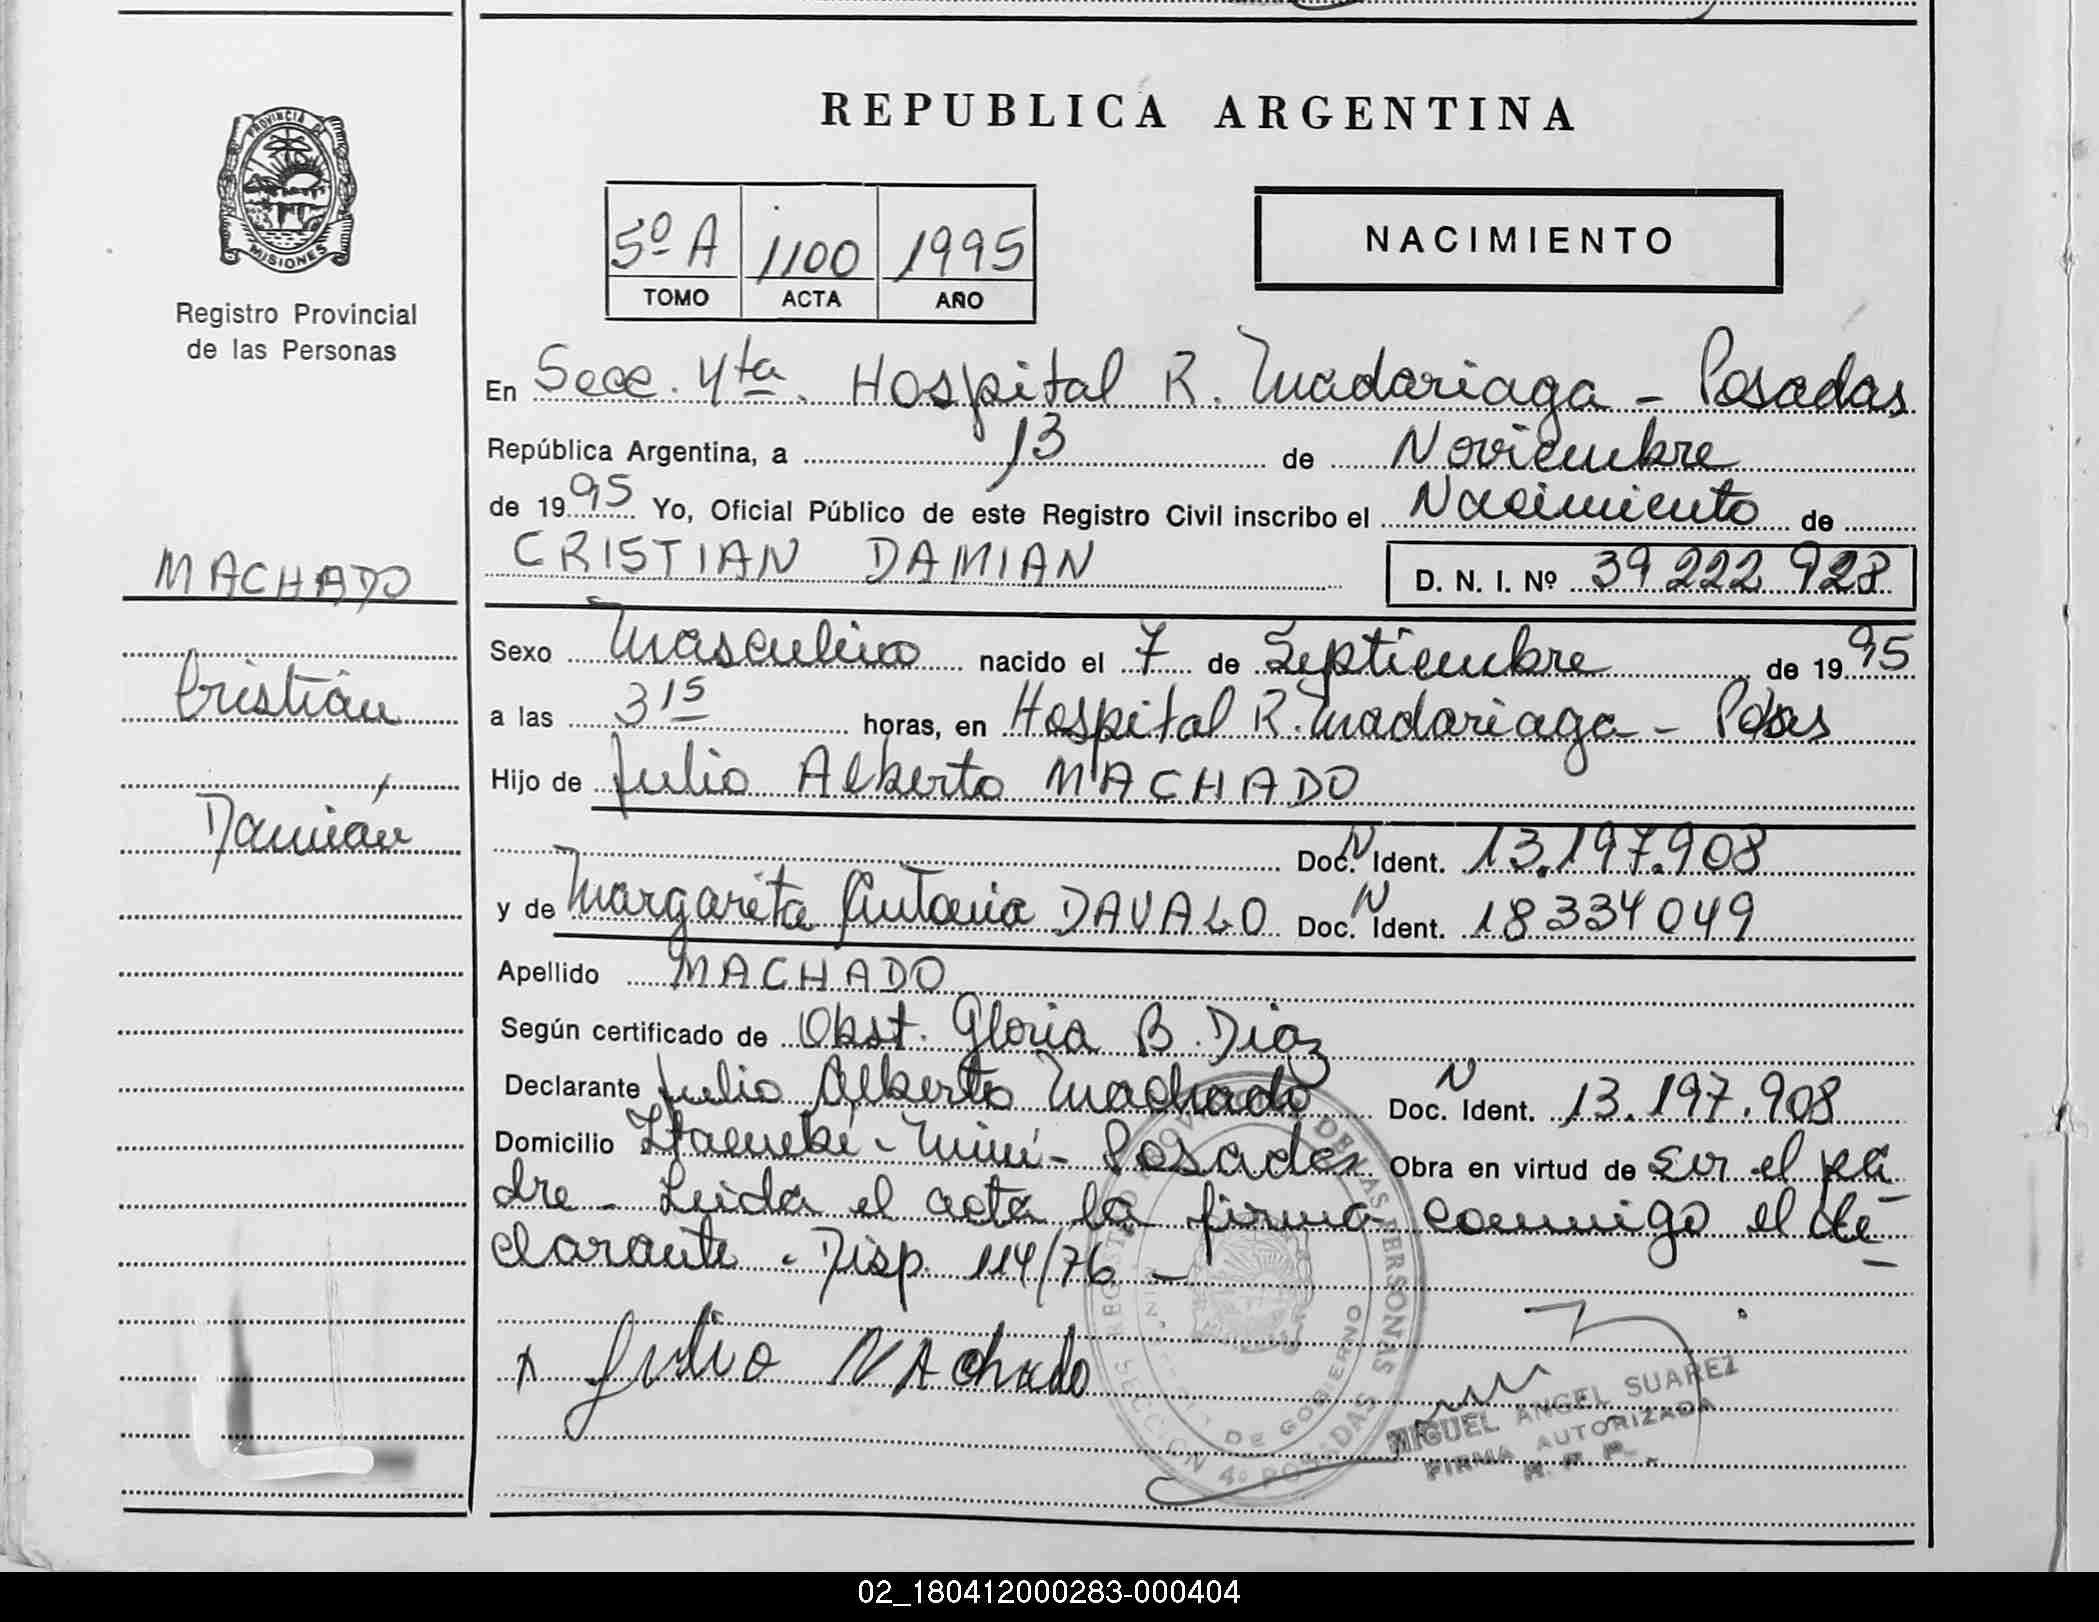 REPUBLICA ARGENTINA
PROVINCIA DE
MISIONES
Registro Provincial
de las Personas
5º A 1100 1995
TOMO ACTA AÑO
NACIMIENTO
En Secc. 4ta. Hospital R. Madariaga - Posadas
República Argentina, a 13 de Noviembre
de 1995 Yo, Oficial Público de este Registro Civil inscribo el Nacimiento de
CRISTIAN DAMIAN
D. N. I. Nº 39 222 928
MACHADO
Cristián
Damián
Sexo Masculino nacido el 7 de Septiembre de 1995
a las 3 15 horas, en Hospital R. Madariaga - Pdas
Hijo de Julio Alberto MACHADO
Doc. N Ident. 13.197.908
y de Margarita Antonia DAVALO Doc. N Ident. 18334049
Apellido MACHADO
Según certificado de Obst. Gloria B. Diaz
Declarante Julio Alberto Machado Doc. N Ident. 13.197.908
Domicilio Itaembé - Miní - Posadas Obra en virtud de ser el pa-
dre - Leída el acta la firma conmigo el de-
clarante - Disp. 114/76 -
x Julio MAchado
REGISTRO PROVINCIAL DE LAS PERSONAS
SECCION 4º POSADAS
DE GOBIERNO
MIGUEL ANGEL SUAREZ
FIRMA AUTORIZADA
R. P. P.
02_180412000283-000404